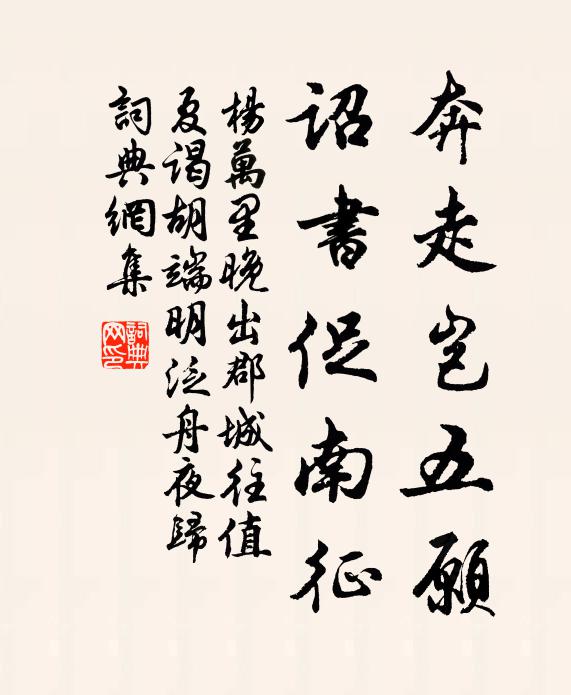 奔走岂五願
詔書促南征
楊萬里晚出郡城往值
夏謁胡端明泛舟夜歸
詞典網集
詞典
网印